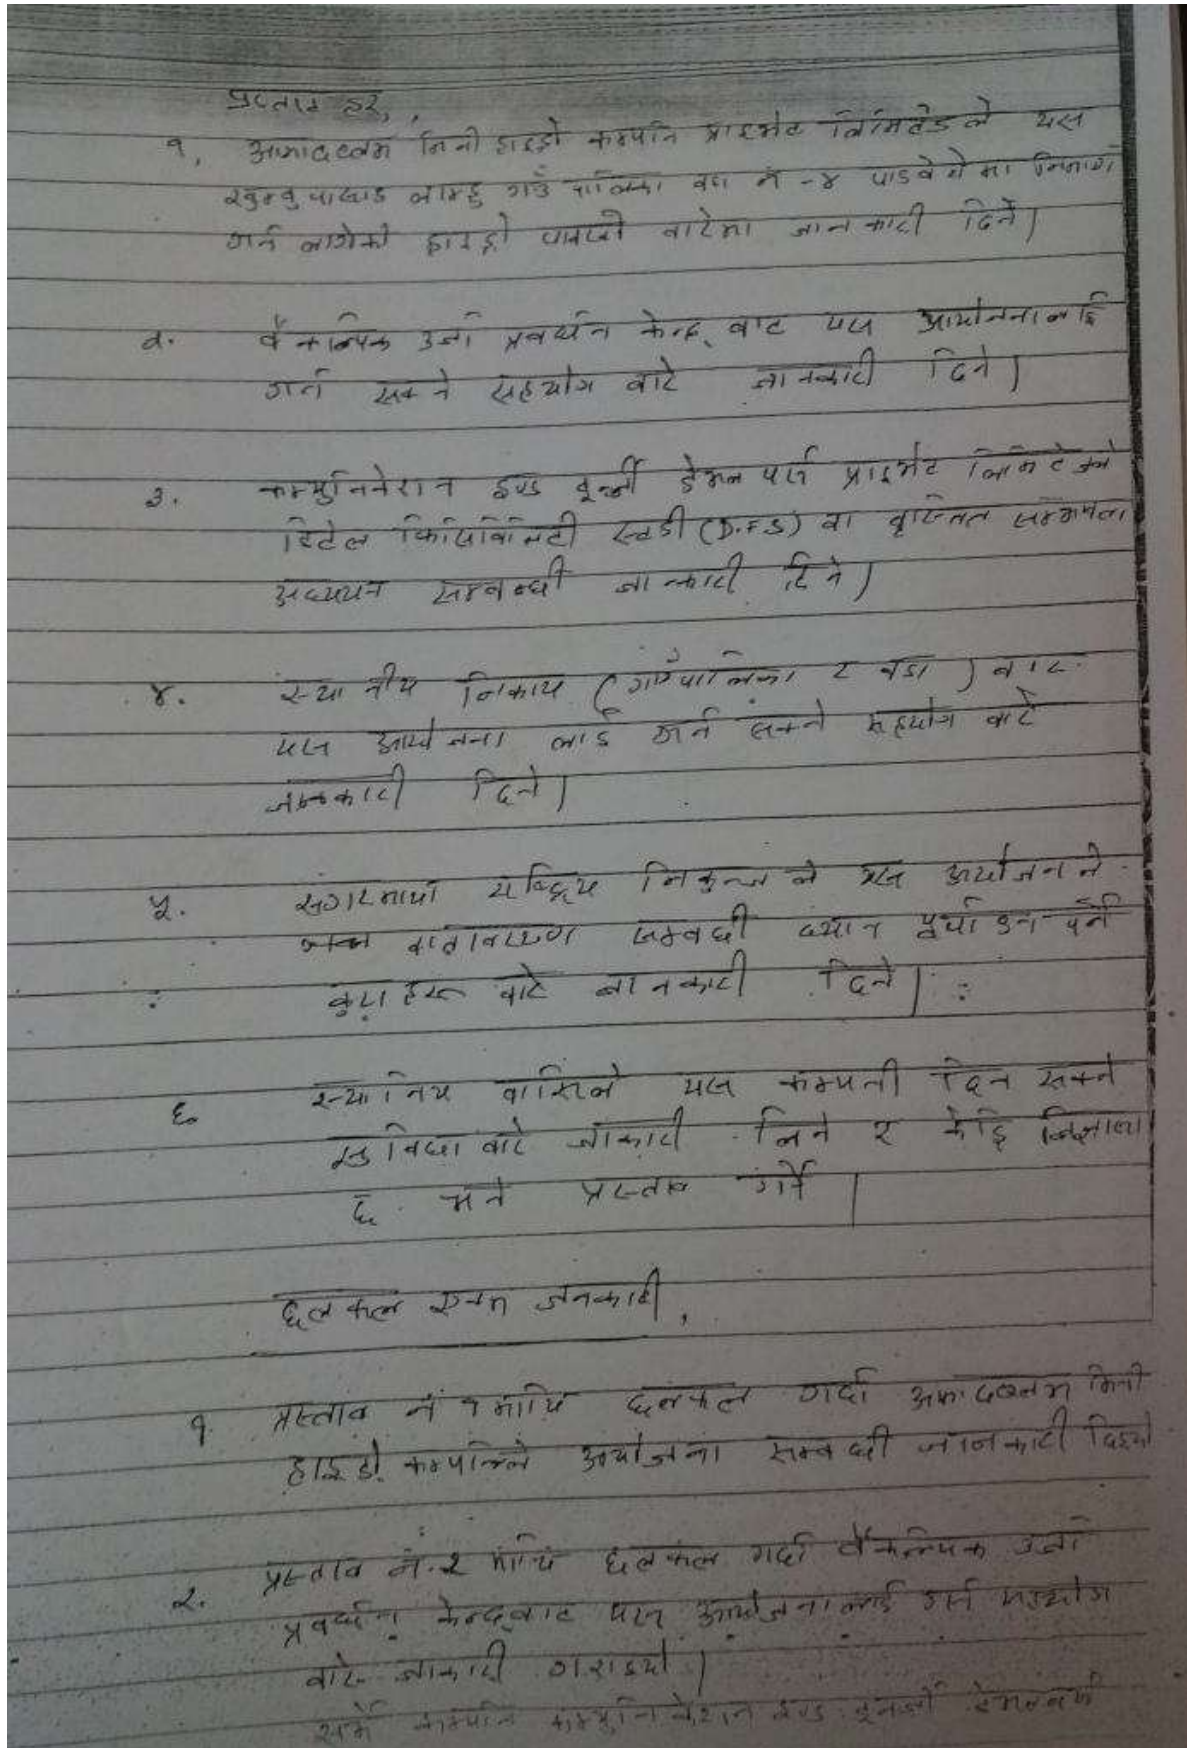 प्रस्ताव हरु,
१. मिनी हाइड्रो कम्पनि प्राइभेट लिमिटेडले यस
खुम्बु पासाङ ल्हाम्हु गाउँ पालिका वडा नं -४ मा निर्माण
गर्न लागेको हाइड्रो बारेमा जानकारी दिने।
२. वैकल्पिक उर्जा प्रवर्धन केन्द्र बाट यस आयोजनालाई
गर्न सक्ने सहयोग बारे जानकारी दिने।
३. कम्युनिकेशन इण्ड इनर्जी डेभलपर्स प्राइभेट लिमिटेडले
डिटेल फिसिबिलिटी स्टडी (D.F.S) वा सम्भाव्यता
अध्ययन सम्बन्धी जानकारी दिने।
४. स्थानीय निकाय (गाउँपालिका र वडा) बाट
यस आयोजना लाई गर्न सक्ने सहयोग बारे
जानकारी दिने।
५. निकुन्ज ले यस आयोजनाले
वातावरण सम्बधी ध्यान पुर्याउन पर्ने
कुराहरु बारे जानकारी दिने।
६ स्थानिय वासिले यस कम्पनी दिन सक्ने
सुविधा बारे जाकारी लिने र केहि जिज्ञासा
छ भने प्रस्ताव गर्ने।
छलफल एवम जनकारी,
१ प्रस्ताव नं १ माथि छलफल गर्दा मिनी
हाइड्रो कम्पनिले आयोजना सम्बधी जानकारी दिइयो
२. प्रस्ताव नं. २ माथि छलफल गर्दा वैकल्पिक उर्जा
प्रवर्धन केन्द्रबाट यस आयोजनालाई गर्न सहयोग
बारे जाकारी गराइयो।
कम्पनि कम्युनिकेशन इण्ड इनर्जी